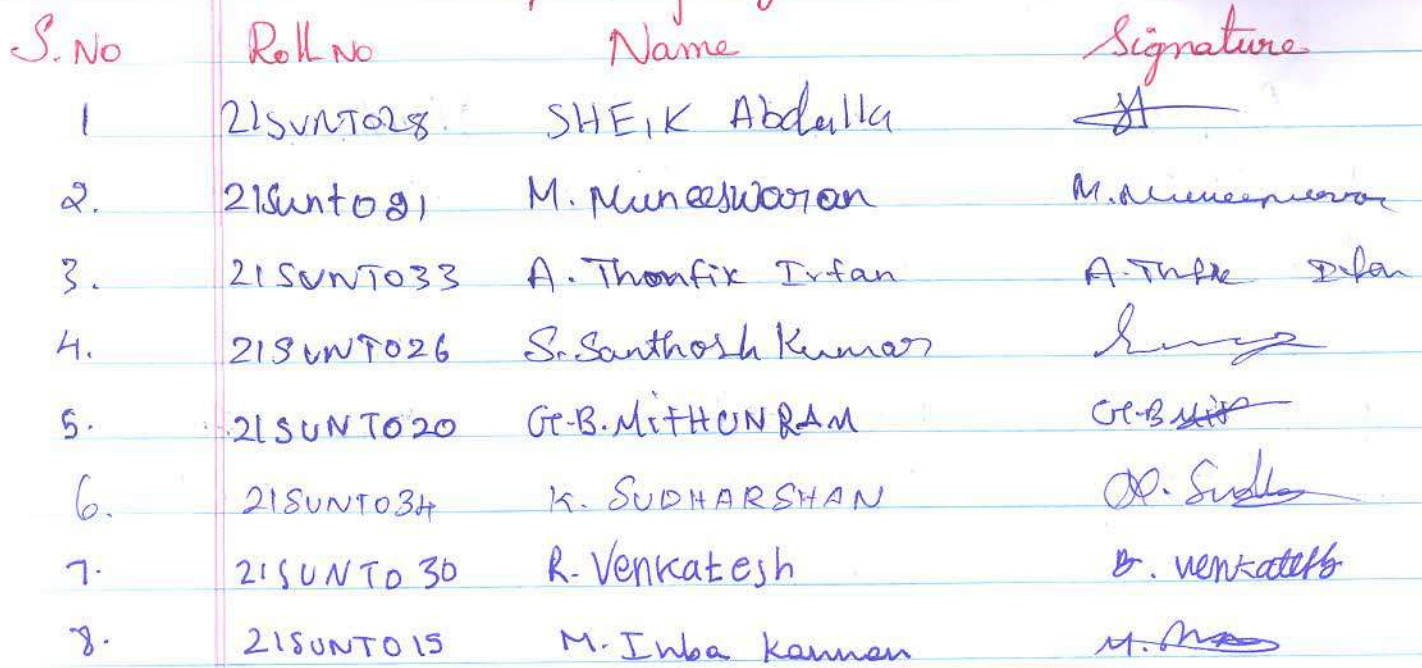 S. No Roll No Name Signature
1 21SUNT028. SHEIK Abdulla
2. 21Sunt021 M. Muneeswaran M. Muneeswaran
3. 21SUNT033 A. Thonfix Irfan A. Irfan
4. 21SUNT026 S. Santhosh Kumar
5. 21SUNT020 G.B. MITHUNRAM G.B
6. 21SUNT034 K. SUDHARSHAN
7. 21SUNT030 R. Venkatesh venkatesh
8. 21SUNT015 M. Inba Kannan M.